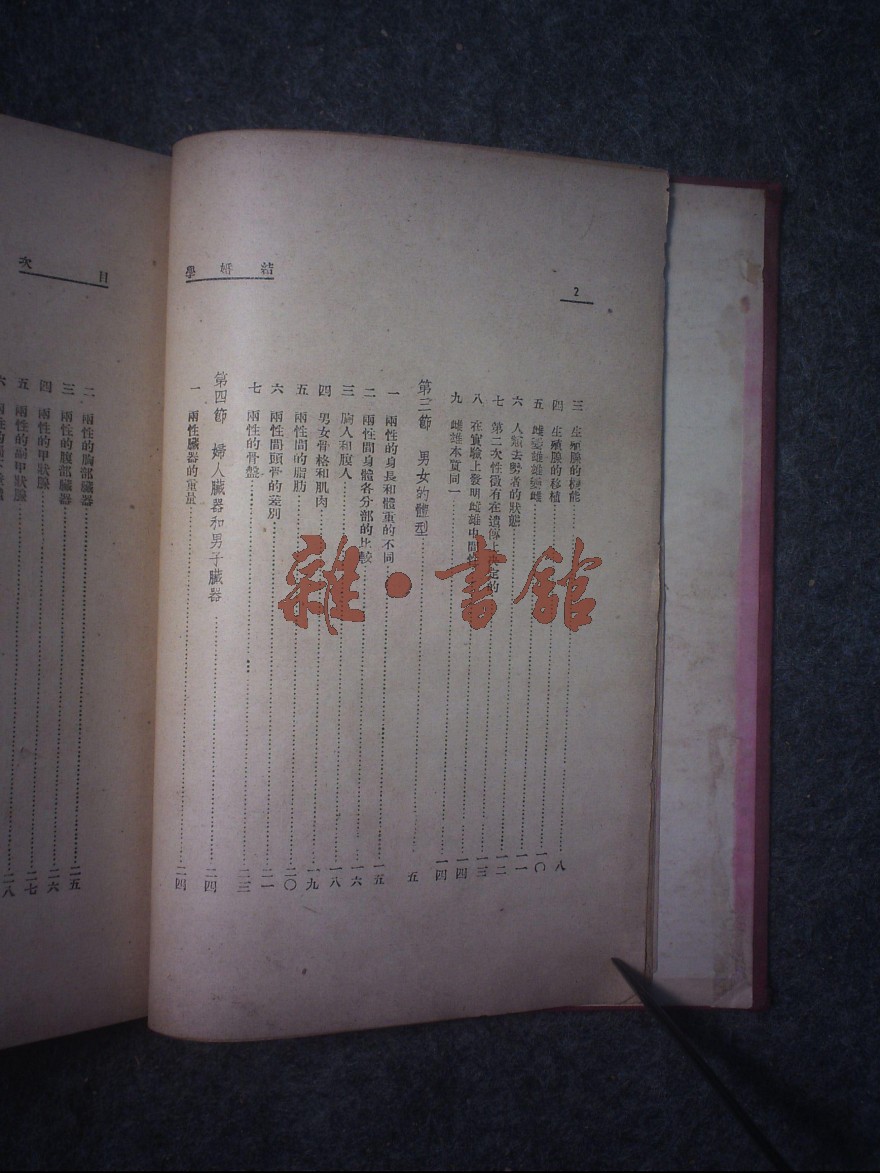 結婚學
2
三 生殖腺的機能
四 生殖腺的移植……八
五 雌變雄雄變雌……一〇
六 人類去勢者的狀態……一一
七 第二次性徵有在遺傳上 定的……一二
八 在實驗上發明雌雄中間……一三
九 雌雄本質同一……一四
第三節 男女的體型……五
一 兩性的身長和體重的不同……一五
二 兩性間身體各分部的比較……一六
三 胸人和腹人……一八
四 男女骨格和肌肉……一九
五 兩性間的脂肪……二〇
六 兩性間頭骨的差別……二一
七 兩性的骨盤……二三
第四節 婦人臟器和男子臟器……二四
一 兩性臟器的重量……二四
目次
二 兩性的胸部臟器……二五
三 兩性的腹部臟器……二六
四 兩性的甲狀腺……二七
五 兩性的副甲狀腺……二八
六 兩性的
雜·書館